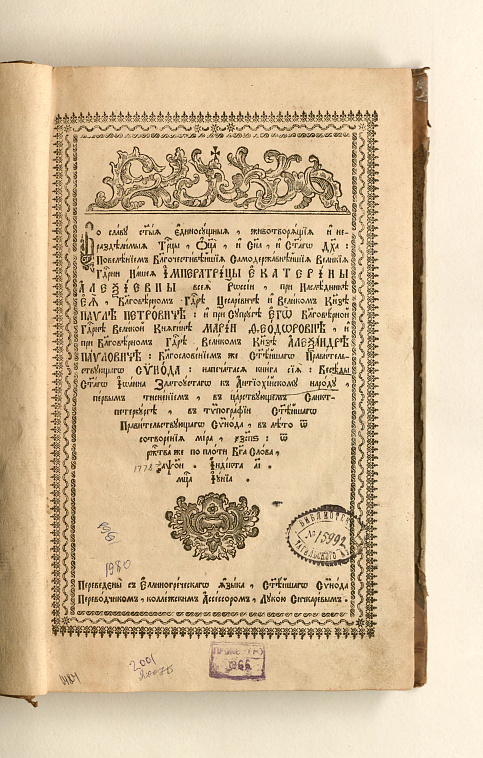 Во славу ст҃ыѧ є҆диносꙋ́щныѧ , животворѧ́щїѧ и҆ не-
раздѣли́мыѧ Трⷪ҇цы , Ѻ҆ц҃а̀ , и҆ Сн҃а , и҆ Ст҃а́гѡ Дх҃а :
Повелѣ́нїемъ Бл҃гочести́вѣйшїѧ Самодержа́внѣйшїѧ Вели́кїѧ
Гдⷭ҇рни На́шеѧ И҆МПЕРАТРИ́ЦЫ Е҆КАТЕРИ́НЫ
А҆ЛЕѮІ́ЕВНЫ всеѧ̀ Рѡссі́и , при Наслѣ́дникѣ
Е҆Ѧ̀ , Бл҃говѣ́рномъ Гдⷭ҇рѣ Цесаре́вичѣ и҆ Вели́комъ Кн҃зѣ
ПА́ѴЛѢ ПЕТРО́ВИЧѢ : и҆ при Сꙋпрꙋ́гѣ Е҆ГѠ̀ Бл҃говѣ́рной
Гдⷭ҇рнѣ Вели́кой Кнѧги́нѣ МАРІ́И Ѳ҆ЕѠ́ДОРОВНѢ , и҆
при Бл҃говѣ́рномъ Гдⷭ҇рѣ Вели́комъ Кн҃зѣ А҆ЛЕѮА́НДРѢ
ПА́ѴЛОВИЧѢ : Бл҃гослове́нїемъ же Ст҃ѣ́йшагѡ Прави́тель-
ствꙋющагѡ СѴНО́ДА : напеча́тасѧ кни́га сїѧ̀ : Бесѣ́ды
Ст҃а́гѡ І҆ѡа́нна Златоꙋ́стагѡ къ А҆нтїохі́йскомꙋ наро́дꙋ ,
пе́рвымъ тисне́нїемъ , въ ца́рствꙋющемъ Санкт-
петербꙋ́ргѣ , въ тѷпогра́фїи Ст҃ѣ́йшагѡ
Прави́тельствꙋющагѡ Сѷно́да , въ лѣ́то ѿ
сотворе́нїѧ мі́ра , ҂зс҃пѕ : ѿ
рⷤтва́ же по пло́ти Бг҃а Сло́ва ,
1778 ҂аѱо҃и . І҆нді́кта а҃і .
мцⷭ҇а І҆ꙋ́нїа .
БИБЛИОТЕК
№ 15992
1980
Переведены̀ съ Е҆ллиногре́ческагѡ ꙗ҆зы́ка , Ст҃ѣ́йшагѡ Сѷно́да
Перево́дчикомъ , колле́жскимъ А҆ссе́ссоромъ , Лꙋко́ю Сѣчкаре́вымъ .
1966
2001